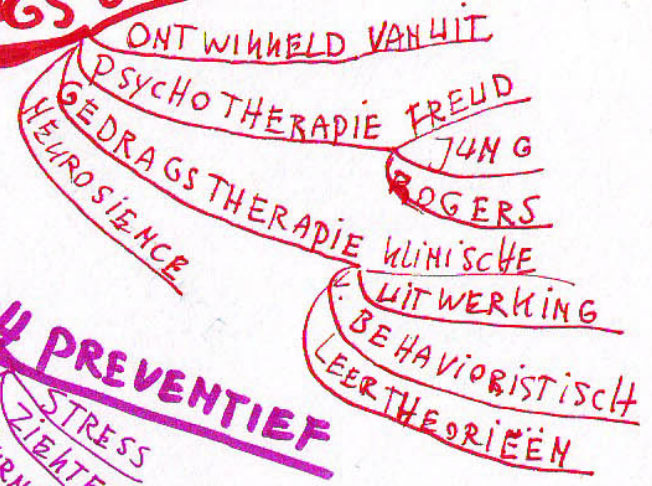 GS
ONTWIKKELD VANUIT
PSYCHOTHERAPIE
FREUD
JUNG
ROGERS
GEDRAGSTHERAPIE
KLINISCHE
UITWERKING
BEHAVIORISTISCH
LEERTHEORIEËN
NEUROSIENCE
4 PREVENTIEF
STRESS
ZIEKTE